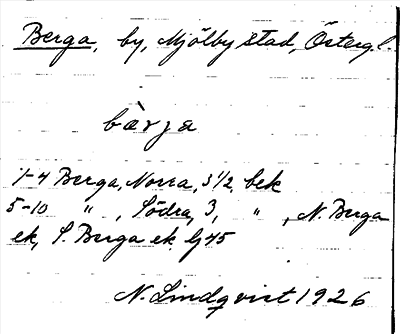 Berga, by, Mjölby stad, Östergl.
bærja
1-4 Berga, Norra, 3 1/2, bek
5-10 " , Södra, 3, " , N. Berga
ek, S. Berga ek lj 45
N. Lindqvist 1926